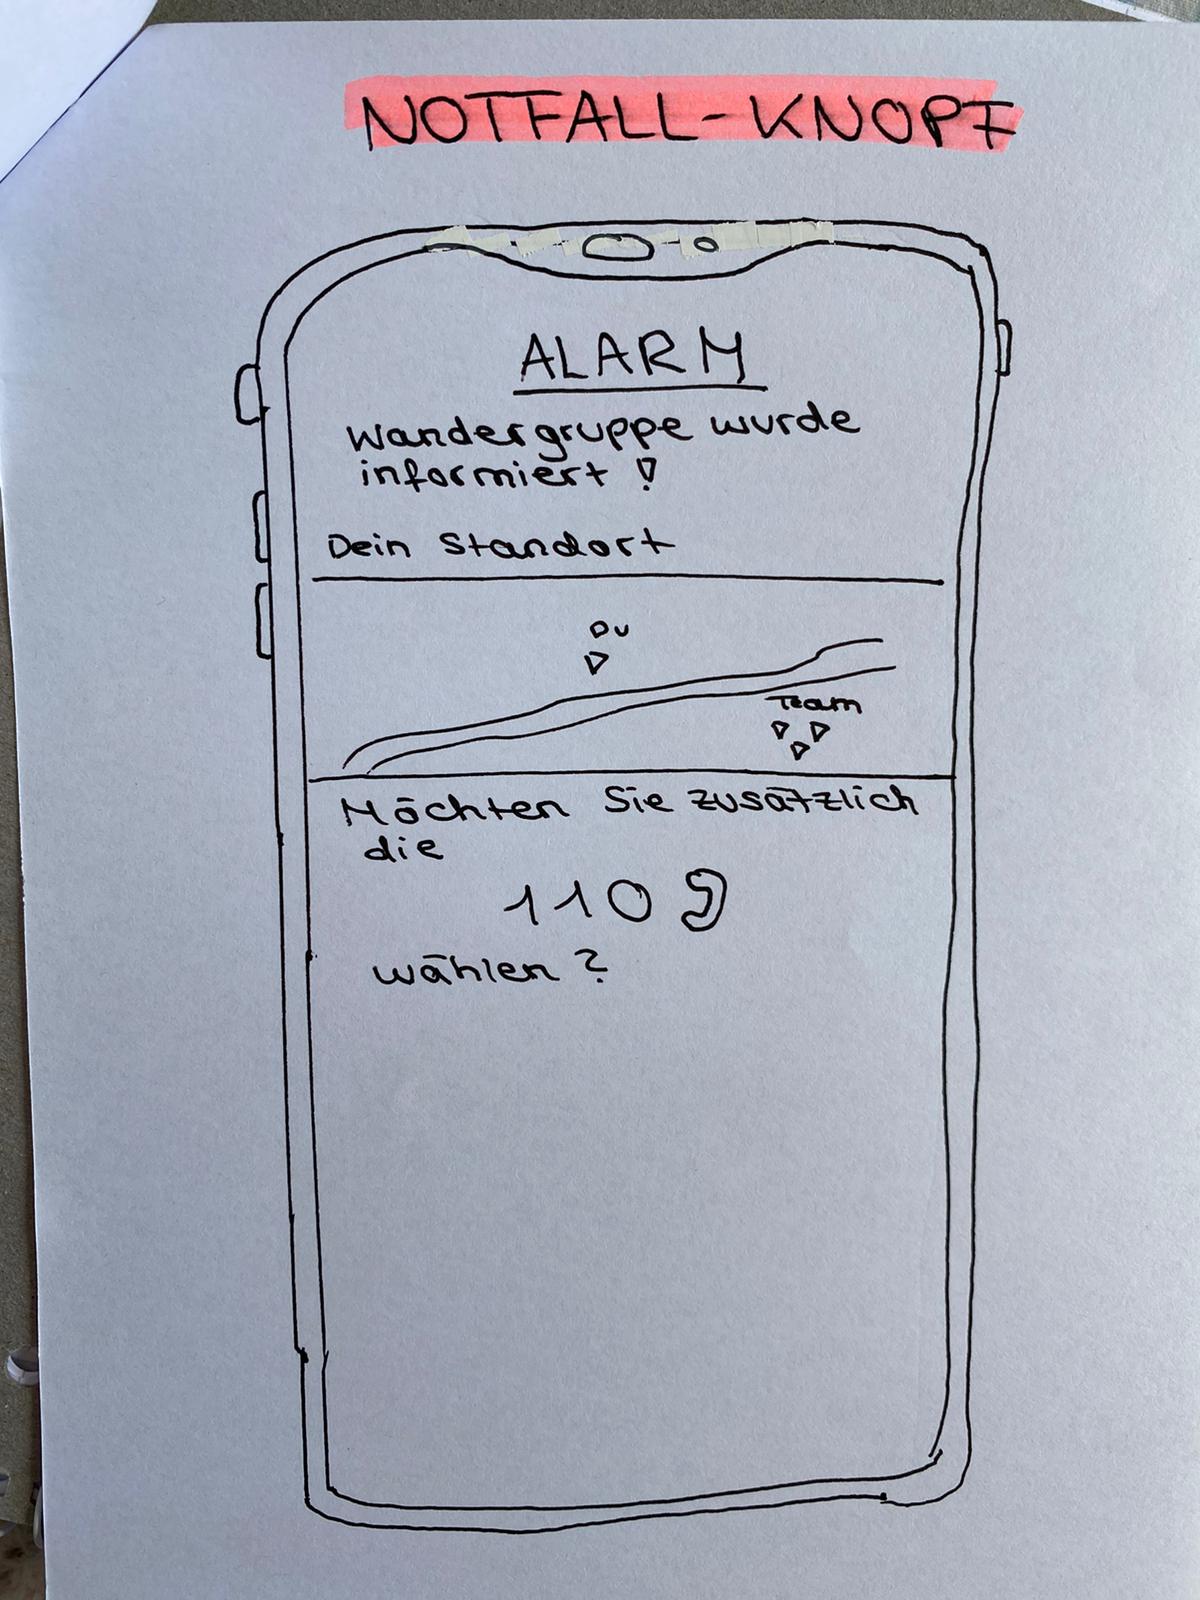 NOTFALL-KNOPF
ALARM
Wandergruppe wurde
informiert!
Dein Standort
Du
Team
Möchten Sie zusätzlich
die
110
wählen?